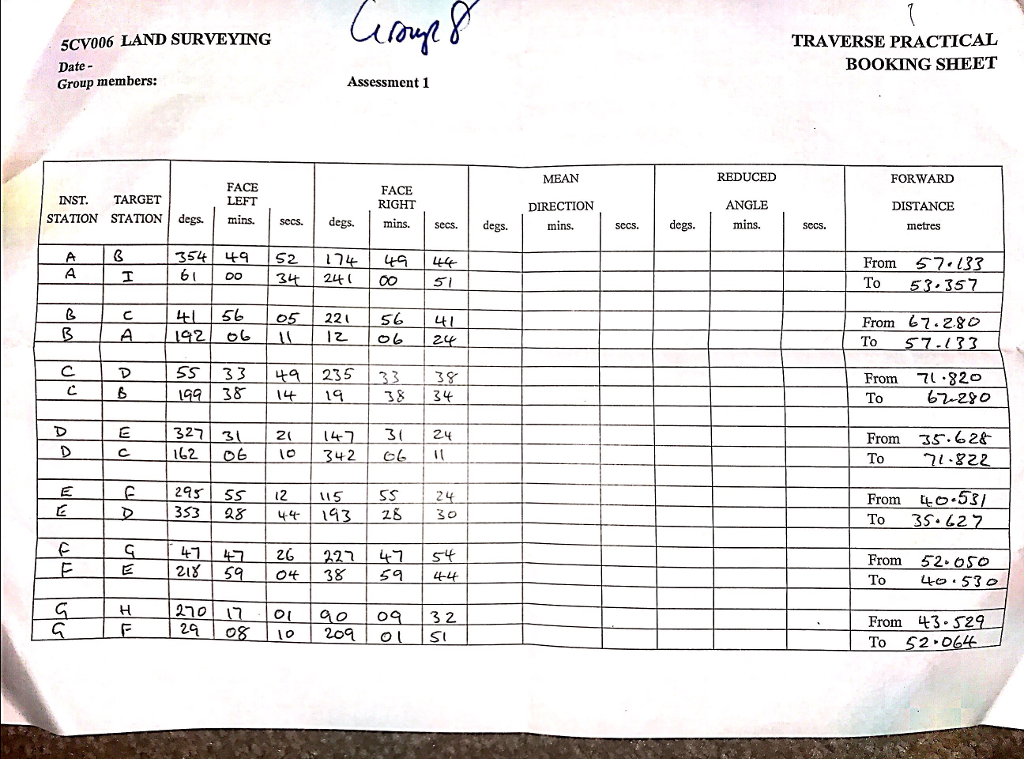 Group 8
5CV006 LAND SURVEYING
TRAVERSE PRACTICAL
BOOKING SHEET
Date -
Group members:
Assessment 1
INST. STATION TARGET STATION FACE LEFT FACE RIGHT MEAN DIRECTION REDUCED ANGLE FORWARD DISTANCE
degs. mins. secs. degs. mins. secs. degs. mins. secs. degs. mins. secs. metres
A B 354 49 52 174 49 44 From 57.133
A I 61 00 34 241 00 51 To 53.357
B C 41 56 05 221 56 41 From 67.280
B A 192 06 11 12 06 24 To 57.133
C D 55 33 49 235 33 38 From 71.820
C B 199 38 14 19 38 34 To 67.280
D E 327 31 21 147 31 24 From 35.628
D C 162 06 10 342 06 11 To 71.822
E F 295 55 12 115 55 24 From 40.531
E D 353 28 44 193 28 30 To 35.627
F G 47 47 26 227 47 54 From 52.050
F E 218 59 04 38 59 44 To 40.530
G H 270 17 01 90 09 32 From 43.529
G F 29 08 10 209 01 51 To 52.064